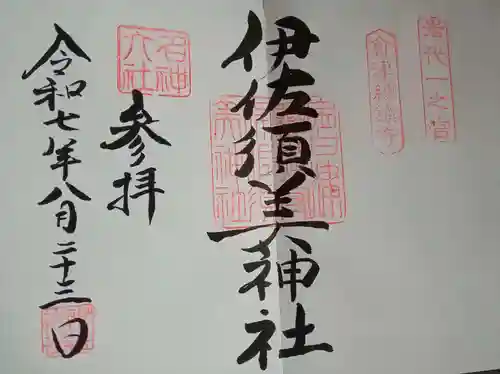 岩代一之宮
会津総鎮守
伊佐須美神社
名神大社
参拝
令和七年八月二十三日